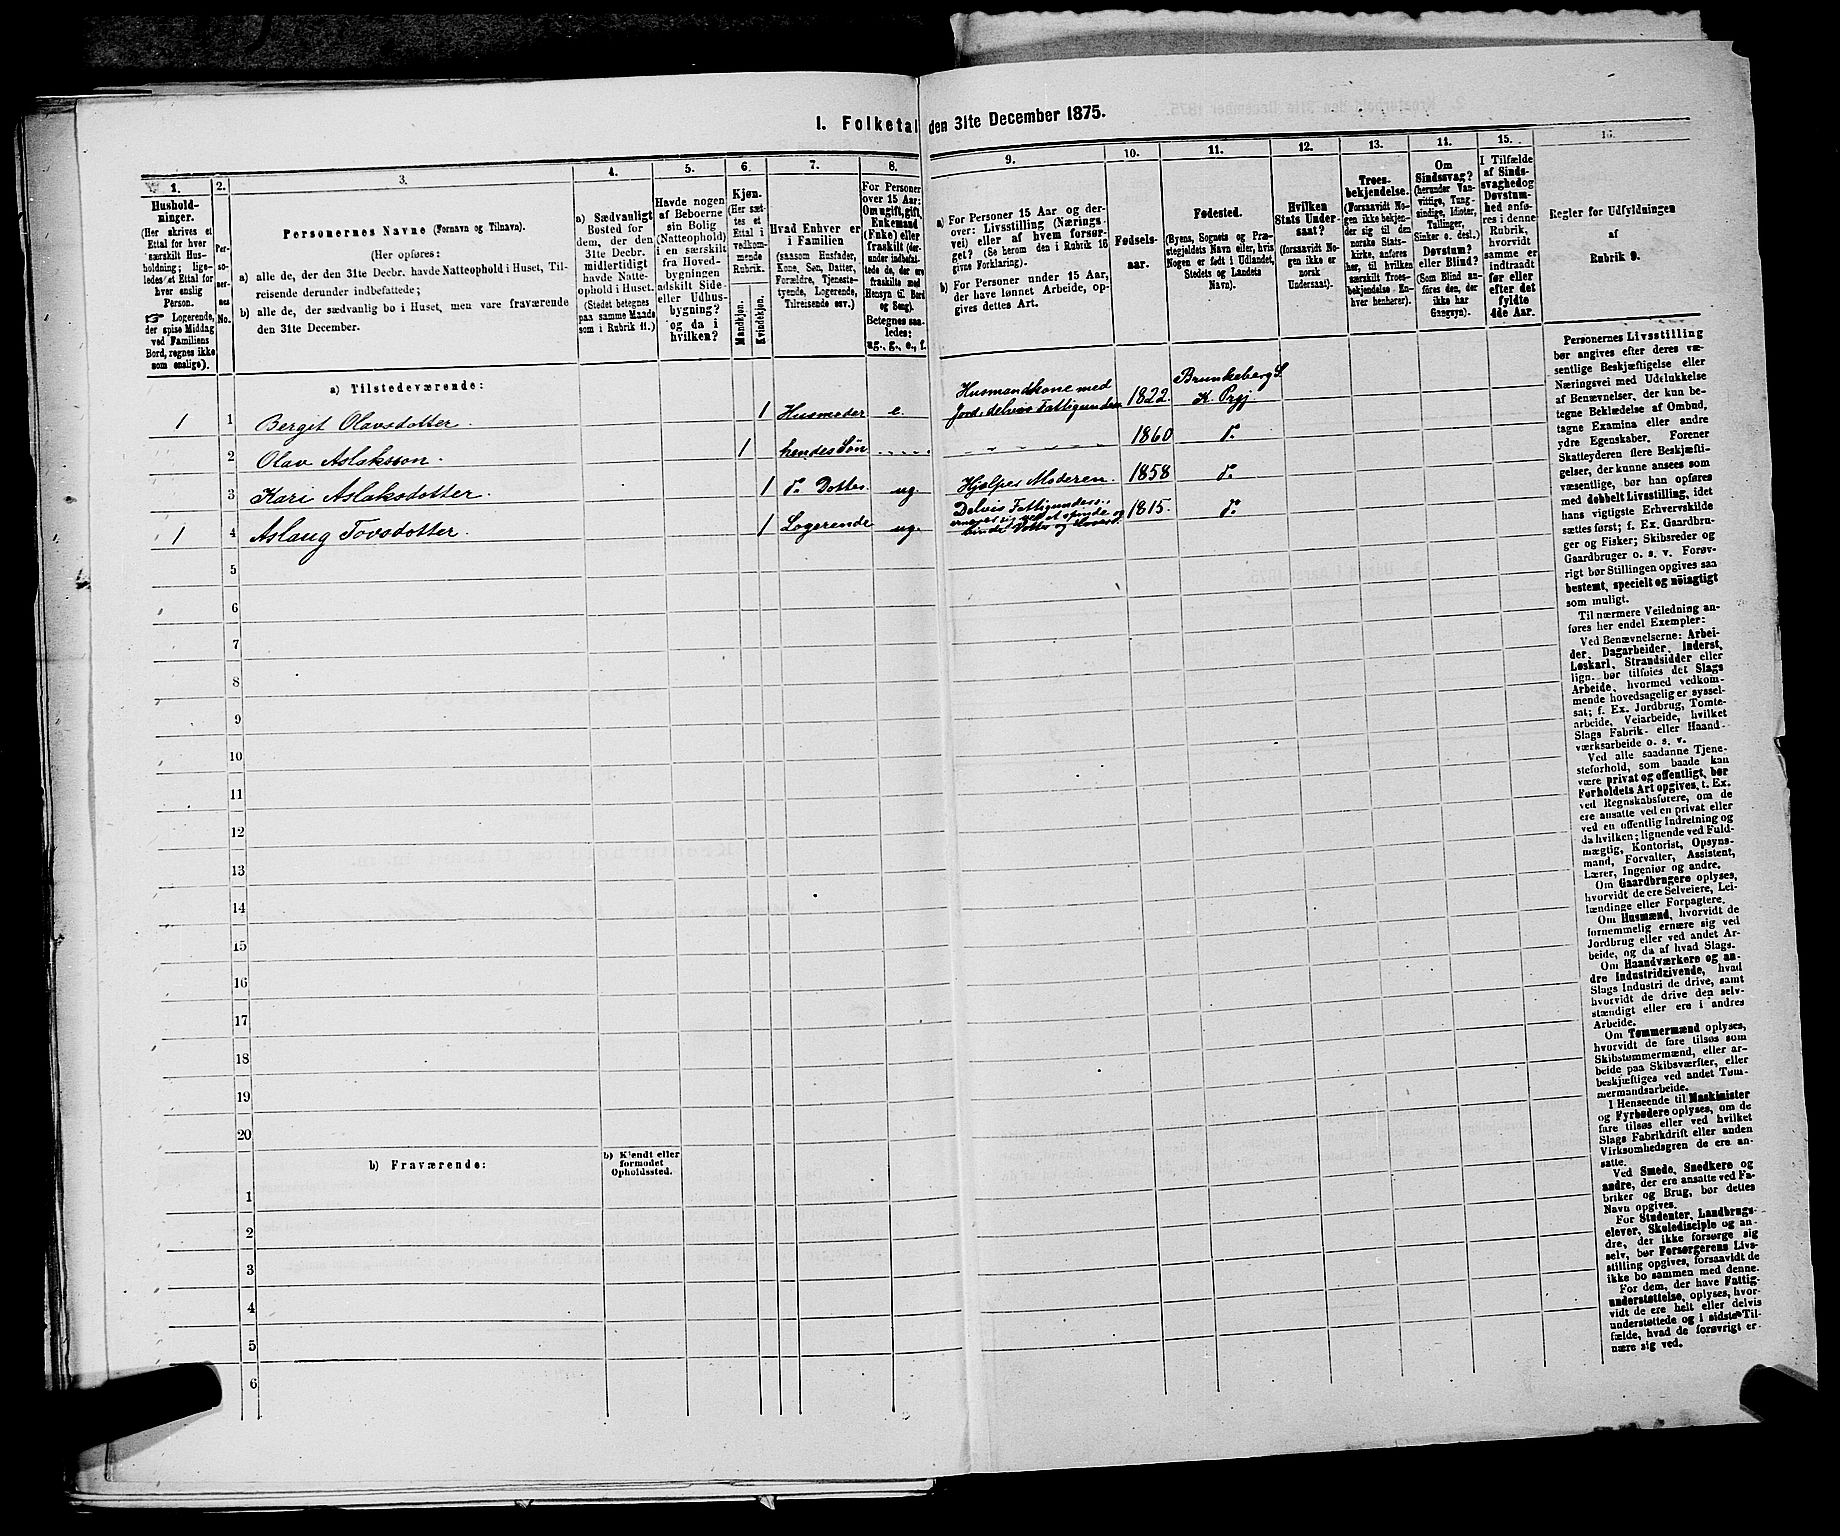 I. Folketal den 31te December 1875.
1. 2. 3. 4. 5. 6. 7. 8. 9. 10. 11. 12. 13. 14. 15. 16.
Hushold-
ninger.
(Her skrives et
Ettal for hver
særskilt Hus-
holdning; lige-
ledes et Ettal for
hver enslig
Person.
Logerende,
der spise Middag
ved Familiens
Bord, regnes ikke
som enslige).
Per-
so-
ner-
nes
No.
Personernes Navne (Fornavn og Tilnavn).
(Her opføres:
a) alle de, der den 31te Decbr. havde Natteophold i Huset, Til-
reisende derunder indbefattede;
b) alle de, der sædvanlig bo i Huset, men vare fraværende
den 31te December.
a) Sædvanligt
Bosted for
dem, der den
31te Decbr.
midlertidigt
havde Natte-
ophold i Huset.
(Stedet betegnes
paa samme Maade
som i Rubrik 11.)
Havde nogen
af Beboerne
sin Bolig
(Natteophold)
i en særskilt
fra Hoved-
bygningen
adskilt Side-
eller Udhus-
bygning?
og da i
hvilken?
Kjøn.
(Her sæt-
tes et
Ettal i
vedkom-
mende
Rubrik.
Mandkjøn.
Kvindekjøn.
Hvad Enhver er
i Familien
(saasom Husfader,
Kone, Søn, Datter,
Forældre, Tjeneste-
tyende, Logerende,
Tilreisende osv.)
For Personer
over 15 Aar:
Om ugift, gift,
Enkemand
(Enke) eller
fraskilt (der-
under indbefat-
tede de, der ere
fraskilte med
Hensyn til Bord
og Seng).
Betegnes saa-
ledes:
ug., g., e., f.
a) For Personer 15 Aar og der-
over: Livsstilling (Nærings-
vei) eller af hvem forsør-
get? (Se herom den i Rubrik 16
givne Forklaring).
b) For Personer under 15 Aar,
der have lønnet Arbeide, op-
gives dettes Art.
Fødsels-
aar.
Fødested.
(Byens, Sognets og Præ-
stegjeldets Navn eller, hvis
Nogen er født i Udlandet,
Stedets og Landets
Navn).
Hvilken
Stats Under-
saat?
(forsaavidt No-
gen ikke er
norsk
Undersaat).
Troes-
bekjendelse.
(Forsaavidt No-
gen ikke bekjen-
der sig til den
norske Stats-
kirke, anføres
her, til hvilken
særskilt Troes-
bekjendelse En-
hver henhører).
Om
Sindssvag?
(herunder Van-
vittige, Tung-
sindige, Idioter,
Tullinger,
Sinker o. desl.)
Døvstum?
eller Blind?
(Som Blind an-
føres den, der
ikke har
Gangsyn).
I Tilfælde
af Sinds-
svaghed og
Døvstum-
hed anfø-
res i denne
Rubrik,
hvorvidt
samme er
indtraadt
før eller
efter det
fyldte
4de Aar.
Regler for Udfyldningen
af
Rubrik 9.
a) Tilstedeværende:
1 1 Bergit Olavsdotter. 1 Husmoder e. Husmandkone med Jord, delvis Fattigunders. 1822. Brunkeberg S. K. Prgj
2 Olav Aslaksson. 1 hendes Søn 1860 d.
3 Kari Aslaksdotter. 1 d. Dotter. ug. Hjælper Moderen. 1858 d.
1 4 Aslaug Tovsdotter. 1 Logerende ug. Delvis Fattigunders.; ernærer sig ved at spinde og binde 1815. d.
5
6
7
8
9
10
11
12
13
14
15
16
17
18
19
20
b) Fraværende:
b) Kjendt eller
formodet
Opholdssted.
1
2
3
4
5
6
Personernes Livsstilling
bør angives efter deres væ-
sentlige Beskjæftigelse eller
Næringsvei med Udelukkelse
af Benævnelser, der kun be-
tegne Beklædelse af Ombud,
tagne Examina eller andre
ydre Egenskaber. Forener
Skatteyderen flere Beskjæfti-
gelser, der kunne ansees som
væsentlige, bør han opføres
med dobbelt Livsstilling, idet
hans vigtigste Erhvervskilde
sættes først; f. Ex. Gaardbru-
ger og Fisker; Skibsreder og
Gaardbruger o. s. v. Forøv-
rigt bør Stillingen opgives saa
bestemt, specielt og nøiagtigt
som muligt.
Til nærmere Veiledning an-
føres her endel Exempler:
Ved Benævnelserne: Arbei-
der, Dagarbeider, Inderst,
Løskarl, Strandsidder eller
lign. bør tilføies det Slags
Arbeide, hvormed vedkom-
mende hovedsagelig er syssel-
sat; f. Ex. Jordbrug, Tomte-
arbeide, Veiarbeide, hvilket
Slags Fabrik- eller Haand-
værksarbeide o. s. v.
Ved alle saadanne Tjene-
steforhold, som baade kan
være privat og offentligt, bør
Forholdets Art opgives, f. Ex.
ved Regnskabsførere, om de
ere ansatte ved en privat eller
ved en offentlig Indretning og
da hvilken; lignende ved Fuld-
mægtig, Kontorist, Opsyns-
mand, Forvalter, Assistent,
Lærer, Ingeniør og andre.
Om Gaardbrugere oplyses,
hvorvidt de ere Selveiere, Lei-
lændinge eller Forpagtere.
Om Husmænd, hvorvidt de
fornemmelig ernære sig ved
Jordbrug eller ved andet Ar-
beide, og da af hvad Slags.
Om Haandværkere og an-
dre Industridrivende, hvad
Slags Industri de drive, samt
hvorvidt de drive den selv-
stændigt eller ere i andres
Arbeide.
Om Tømmermænd oplyses,
hvorvidt de fare tilsøs som
Skibstømmermænd, eller ar-
beide paa Skibsværfter, eller
beskjæftiges ved andet Tøm-
mermandsarbeide.
I Henseende til Maskinister
og Fyrbødere oplyses, om de
fare tilsøs eller ved hvilket
Slags Fabrikdrift eller anden
Virksomhedsgren de ere an-
satte.
Ved Smede, Snedkere og
andre, der ere ansatte ved Fa-
briker og Brug, bør dettes
Navn opgives.
For Studenter, Landbrugs-
elever, Skoledisciple og an-
dre, der ikke forsørge sig
selv, bør Forsørgerens Livs-
stilling opgives, forsaavidt de
ikke bo sammen med denne.
For dem, der have Fattig-
understøttelse, oplyses, hvor-
vidt de ere helt eller delvis
understøttede og i sidste Til-
fælde, hvad de forøvrigt er-
nære sig ved.